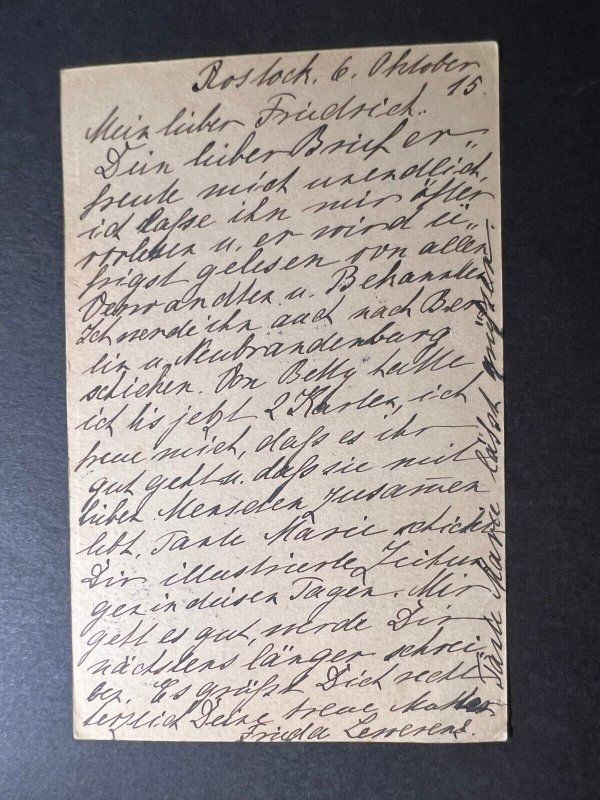 Rostock, 6. Oktober
15.
Mein lieber Friedrich.
Dein lieber Brief er„
freute mich unendlich,
ich lasse ihn mir öfter
vorlesen u. er wird ei„
frigst gelesen von allen
Verwandten u. Bekannten
Ich werde ihn auch nach Ber
lin u. Neubrandenburg
schicken. Von Betty hatte
ich bis jetzt 2 Karten, ich
freue mich, daß es ihr
gut geht u. daß sie mit
lieben Menschen zusamen
lebt. Tante Marie schickt
Dir illustrierte Zeitun
gen in diesen Tagen. Mir
geht es gut, werde Dir
nächstens länger schrei
ben. Es grüßt Dich recht
herzlich Deine treue Mutter
Frieda Lewerenz.
Tante Marie läßt grüßen.